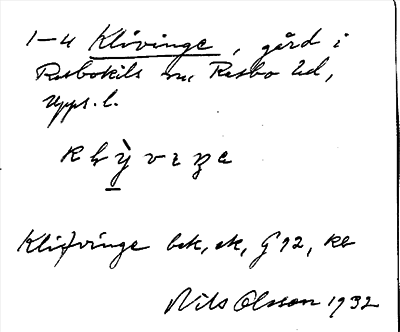 1-4 Klivinge, gård i
Rasbokils sn, Rasbo hd,
Upps. l.
Klifvinge bek, ek, G 92, kb
Nils Olsson 1932